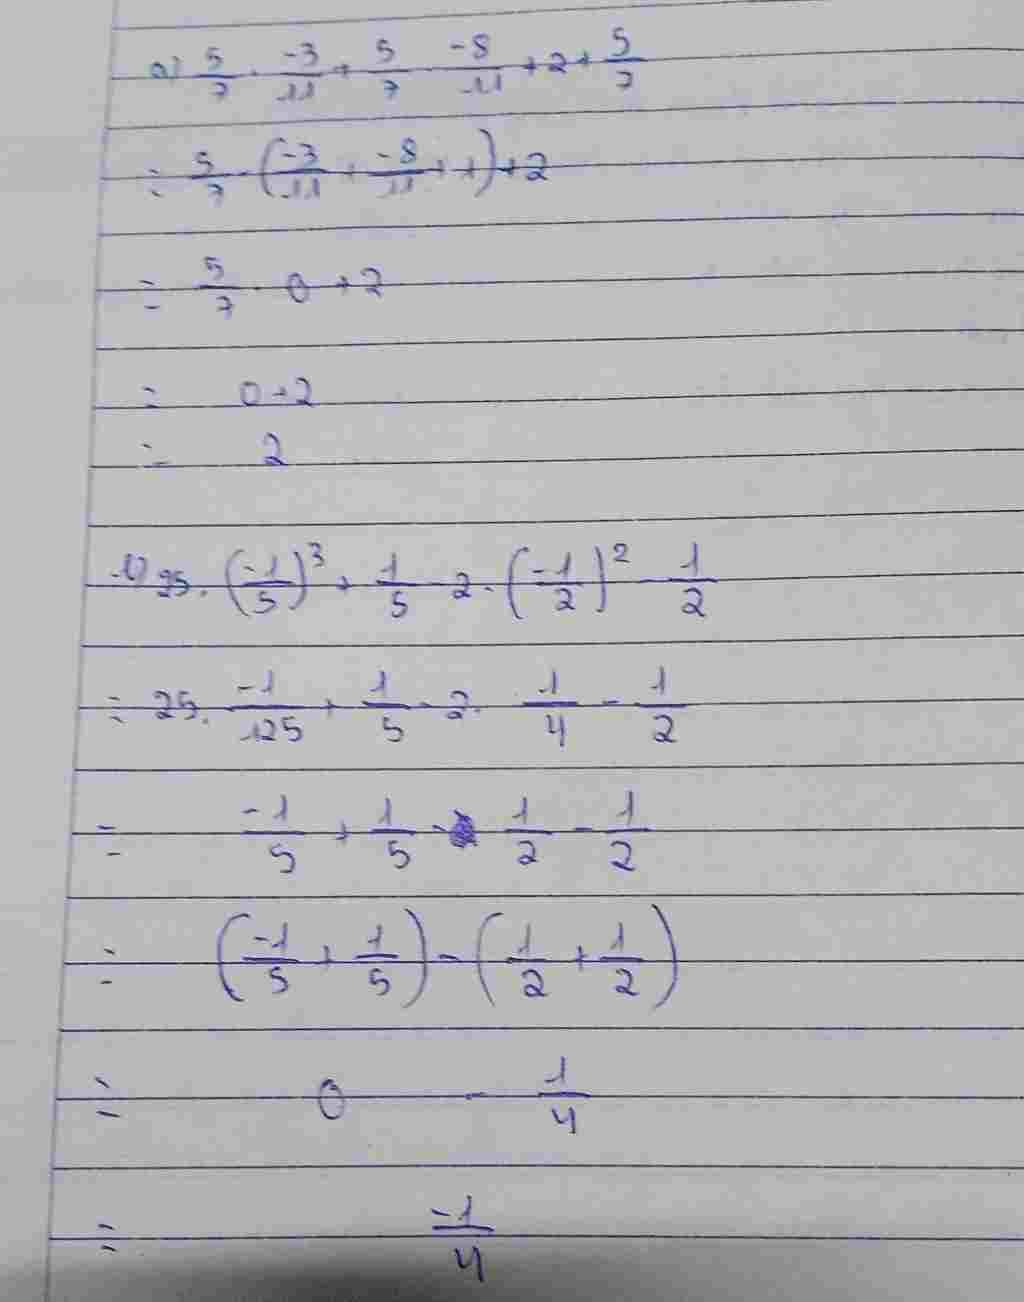 a) 5/7 . -3/11 + 5/7 . -8/11 + 2 + 5/7
= 5/7 . (-3/11 + -8/11 + 1) + 2
= 5/7 . 0 + 2
= 0 + 2
= 2
b) 25. (-1/5)^3 + 1/5 - 2. (-1/2)^2 - 1/2
= 25. -1/125 + 1/5 - 2. 1/4 - 1/2
= -1/5 + 1/5 - 1/2 - 1/2
= (-1/5 + 1/5) - (1/2 + 1/2)
= 0 - 1/4
= -1/4